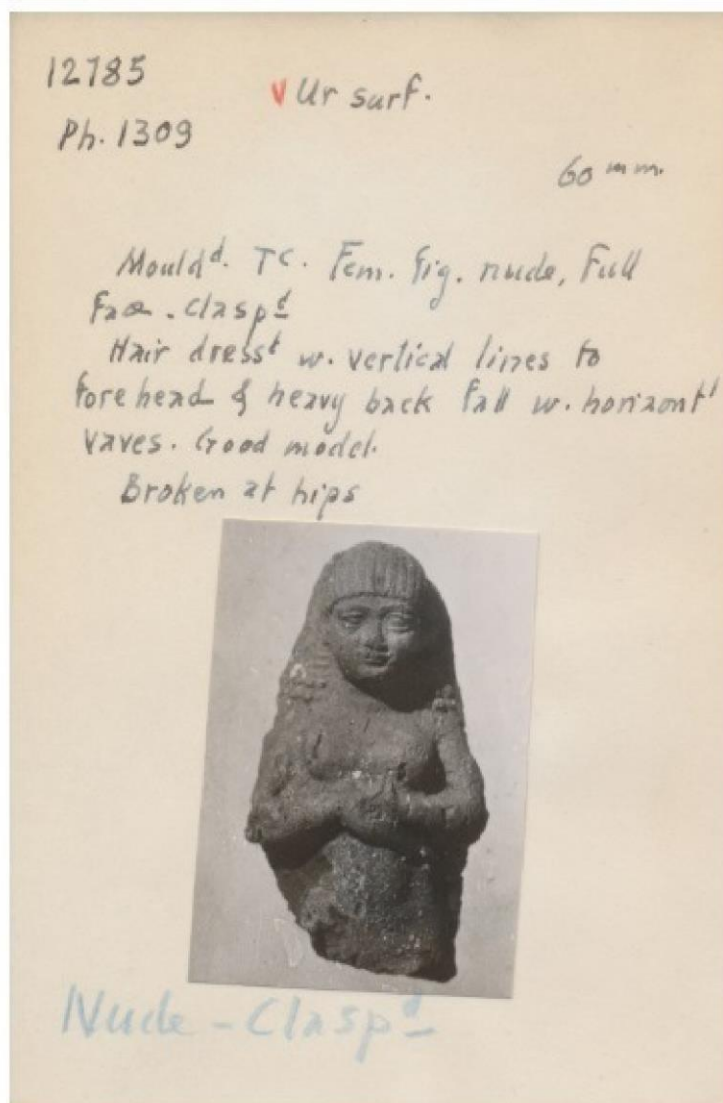 12785
V Ur surf.
Ph. 1309
60 mm.
Mouldd. TC. Fem. fig. nude, Full
face. Claspd
Hair dresst w. vertical lines to
forehead & heavy back fall w. horizontl
vaves. Good model.
Broken at hips
Nude - Claspd